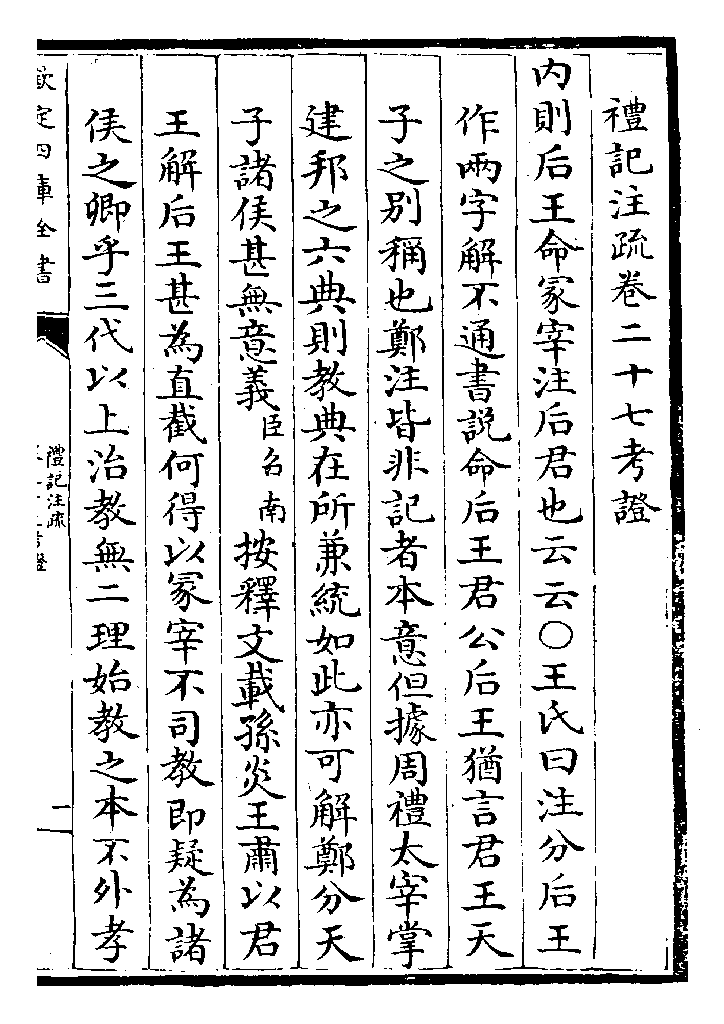 禮記注疏卷二十七考證
内則后王命冢宰注后君也云云〇王氏曰注分后王
作兩字解不通書説命后王君公后王猶言君王天
子之别稱也鄭注皆非記者本意但據周禮太宰掌
建邦之六典則教典在所兼統如此亦可解鄭分天
子諸侯甚無意義臣召南按釋文載孫炎王肅以君
王解后王甚為直截何得以冢宰不司教即疑為諸
侯之卿乎三代以上治教無二理始教之本不外孝
欽定四庫全書
禮記注疏